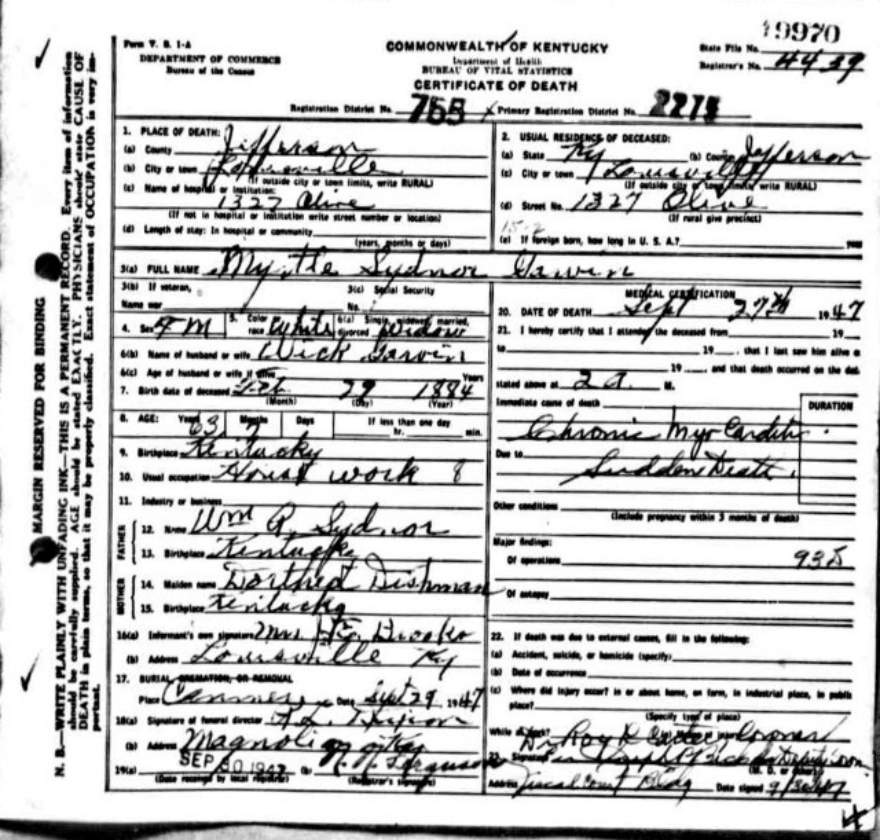 19970
Form V. S. 1-A
DEPARTMENT OF COMMERCE
Bureau of the Census
COMMONWEALTH OF KENTUCKY
Department of Health
BUREAU OF VITAL STATISTICS
CERTIFICATE OF DEATH
State File No.
Registrar's No. 4439
Registration District No. 755 Primary Registration District No. 2275
MARGIN RESERVED FOR BINDING
N. B.—WRITE PLAINLY WITH UNFADING INK—THIS IS A PERMANENT RECORD. Every item of information
should be carefully supplied. AGE should be stated EXACTLY. PHYSICIANS should state CAUSE OF
DEATH in plain terms, so that it may be properly classified. Exact statement of OCCUPATION is very im-
portant.
1. PLACE OF DEATH:
(a) County Jefferson
(b) City or town Louisville
(If outside city or town limits, write RURAL)
(c) Name of hospital or institution:
1327 Olive
(If not in hospital or institution write street number or location)
(d) Length of stay: In hospital or community
(years, months or days)
2. USUAL RESIDENCE OF DECEASED:
(a) State Ky (b) County Jefferson
(c) City or town Louisville
(If outside city or town limits, write RURAL)
(d) Street No. 1327 Olive
(If rural give precinct)
(e) If foreign born, how long in U. S. A.? year
3(a) FULL NAME Myrtle Sydnor Garvin
3(b) If veteran,
Name war
3(c) Social Security
No.
4. Sex Fm 5. Color or race White 6(a) Single, widowed, married, divorced Widow
6(b) Name of husband or wife Wick Garvin
6(c) Age of husband or wife if alive Years
7. Birth date of deceased Feb 29 1884
(Month) (Day) (Year)
8. AGE: Years 63 Months 7 Days If less than one day
hr. min.
9. Birthplace Kentucky
10. Usual occupation House work 8
11. Industry or business
FATHER
12. Name Wm R. Sydnor
13. Birthplace Kentucky
MOTHER
14. Maiden name Dishman
15. Birthplace Kentucky
16(a) Informant's own signature Mrs Brooks
(b) Address Louisville Ky
17. BURIAL, CREMATION, OR REMOVAL
Place Cammer Date Sept 29 1947
18(a) Signature of funeral director
(b) Address Magnolia Ky
19(a) SEP 30 1947 (b) Ferguson
(Date received by local registrar) (Registrar's signature)
MEDICAL CERTIFICATION
20. DATE OF DEATH Sept 27th 1947
21. I hereby certify that I attended the deceased from 19
to 19 , that I last saw him alive o
19 , and that death occurred on the dat
stated above at 2 a. M.
Immediate cause of death
DURATION
Chronic Myocarditis.
Due to
Sudden Death.
Other conditions
(Include pregnancy within 3 months of death)
Major findings:
Of operations 93D
Of autopsy
22. If death was due to external causes, fill in the following:
(a) Accident, suicide, or homicide (specify)
(b) Date of occurrence
(c) Where did injury occur? in or about home, on farm, in industrial place, in public
place?
(Specify type of place)
While at work?
Dr. Roy L Carter, Coroner
23. Signature Deputy Cor.
(M. D. or other)
Address Fiscal Court Bldg Date signed 9/30/47